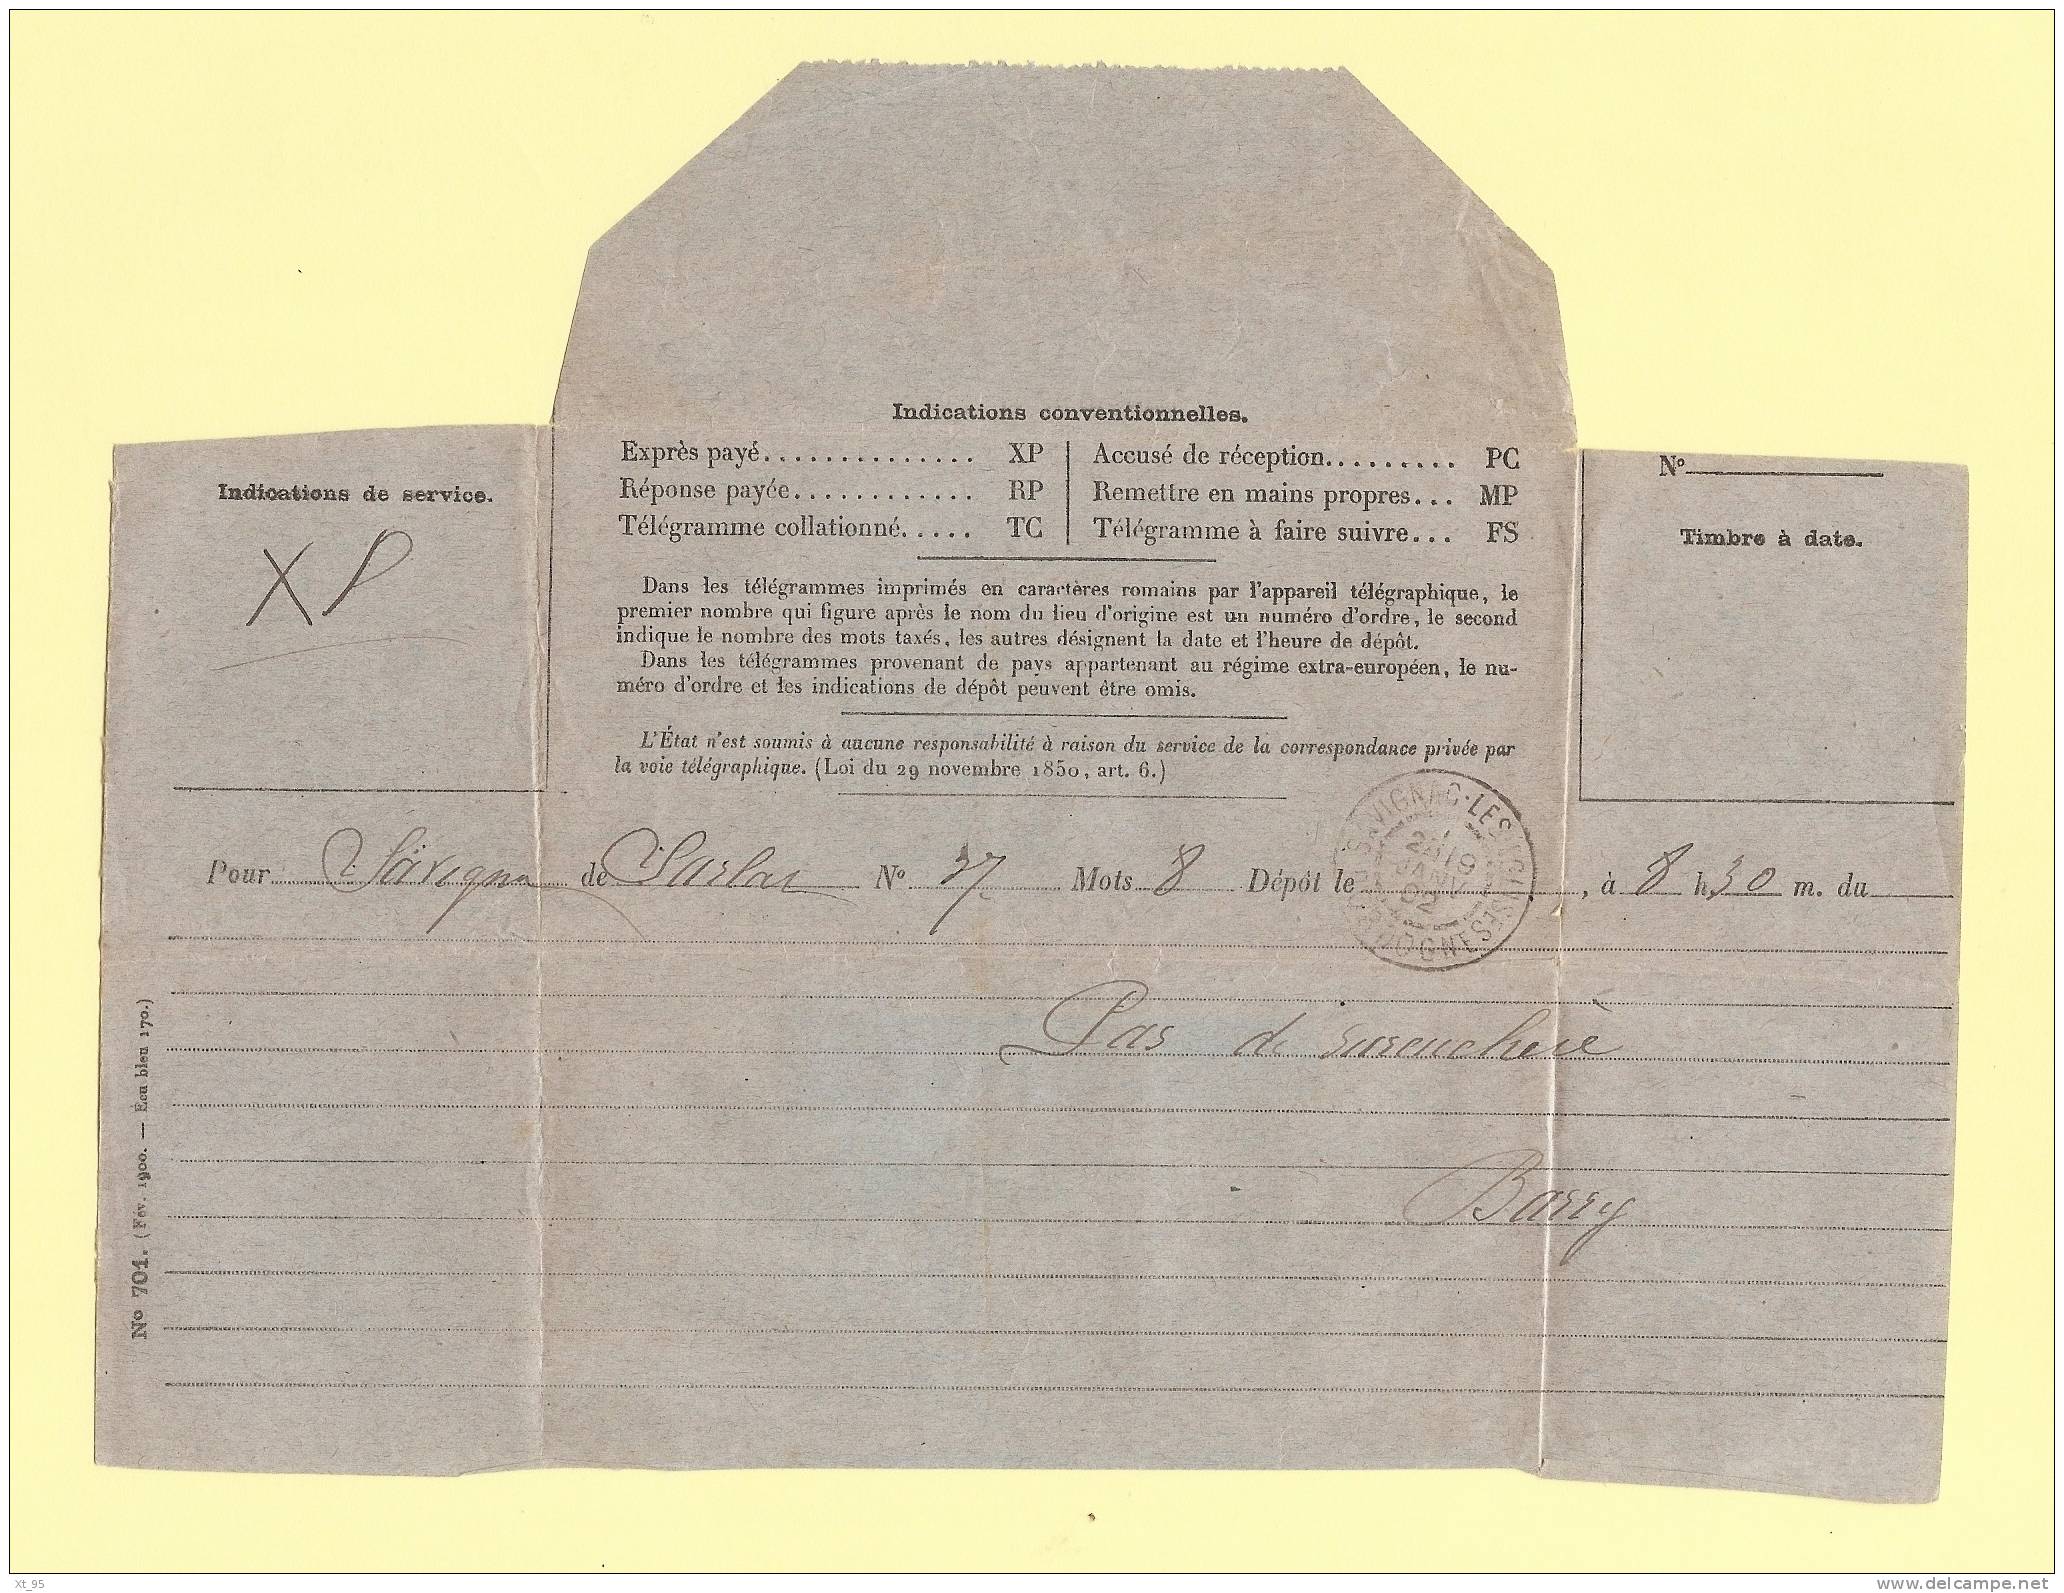 Indications conventionnelles.
Exprès payé.............. XP
Réponse payée............ RP
Télégramme collationné..... TC
Accusé de réception......... PC
Remettre en mains propres... MP
Télégramme à faire suivre... FS
Indications de service.
XP
No
Timbre à date.
Dans les télégrammes imprimés en caractères romains par l'appareil télégraphique, le
premier nombre qui figure après le nom du lieu d'origine est un numéro d'ordre, le second
indique le nombre des mots taxés, les autres désignent la date et l'heure de dépôt.
Dans les télégrammes provenant de pays appartenant au régime extra-européen, le nu-
méro d'ordre et les indications de dépôt peuvent être omis.
L'État n'est soumis à aucune responsabilité à raison du service de la correspondance privée par
la voie télégraphique. (Loi du 29 novembre 1850, art. 6.)
Pour Savignac de Sarlat No 37 Mots 8 Dépôt le , à 8 h 30 m. du
SAVIGNAC-LES-EGLISES
DORDOGNE
19
JANV
02
Pas de surenchère
Barry
No 701. (Fév. 1900. — Écu bleu 170.)
Xt_95
delcampe.net